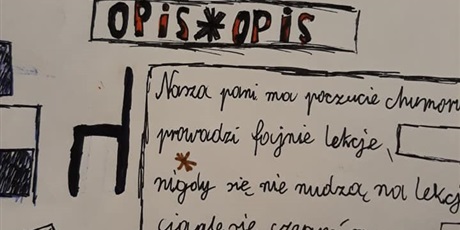 OPIS*OPIS
Nasza pani ma poczucie chumoru
prowadzi fajnie lekcje,
nigdy się nie nudzą na lekcj
ciągle się